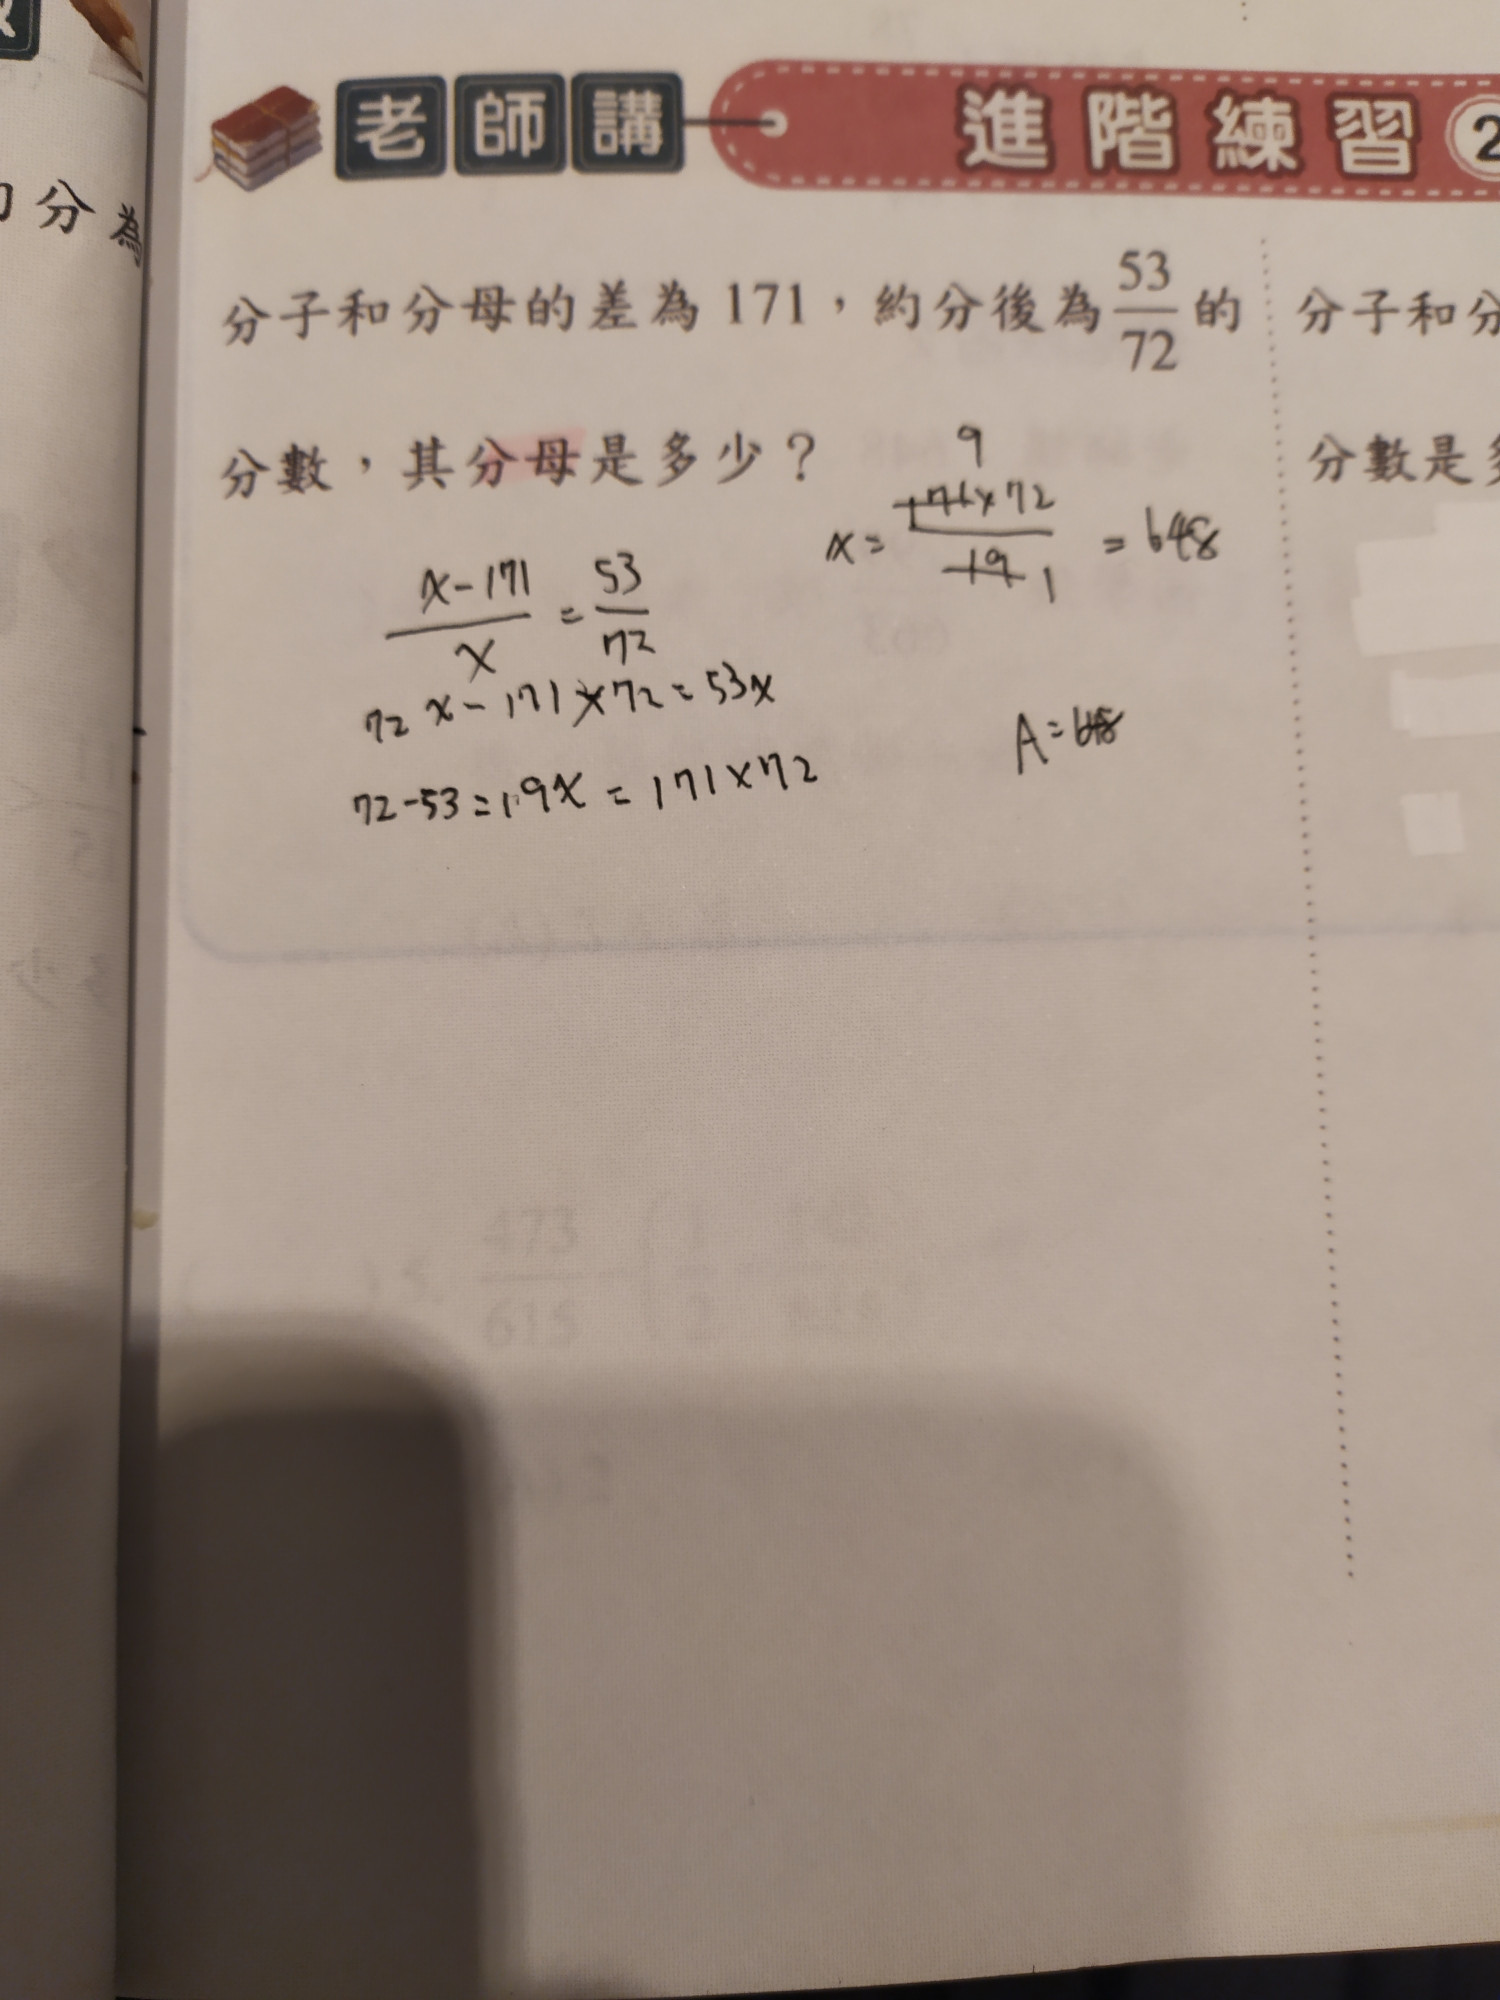 分為
老師講 進階練習 2
分子和分母的差為 171,約分後為 53/72 的
分數,其分母是多少?
x-171/x = 53/72
72x-171×72=53x
72-53=19x=171×72
x= 171×72/19 = 648
9
1
A=648
分子和分
分數是
473
615